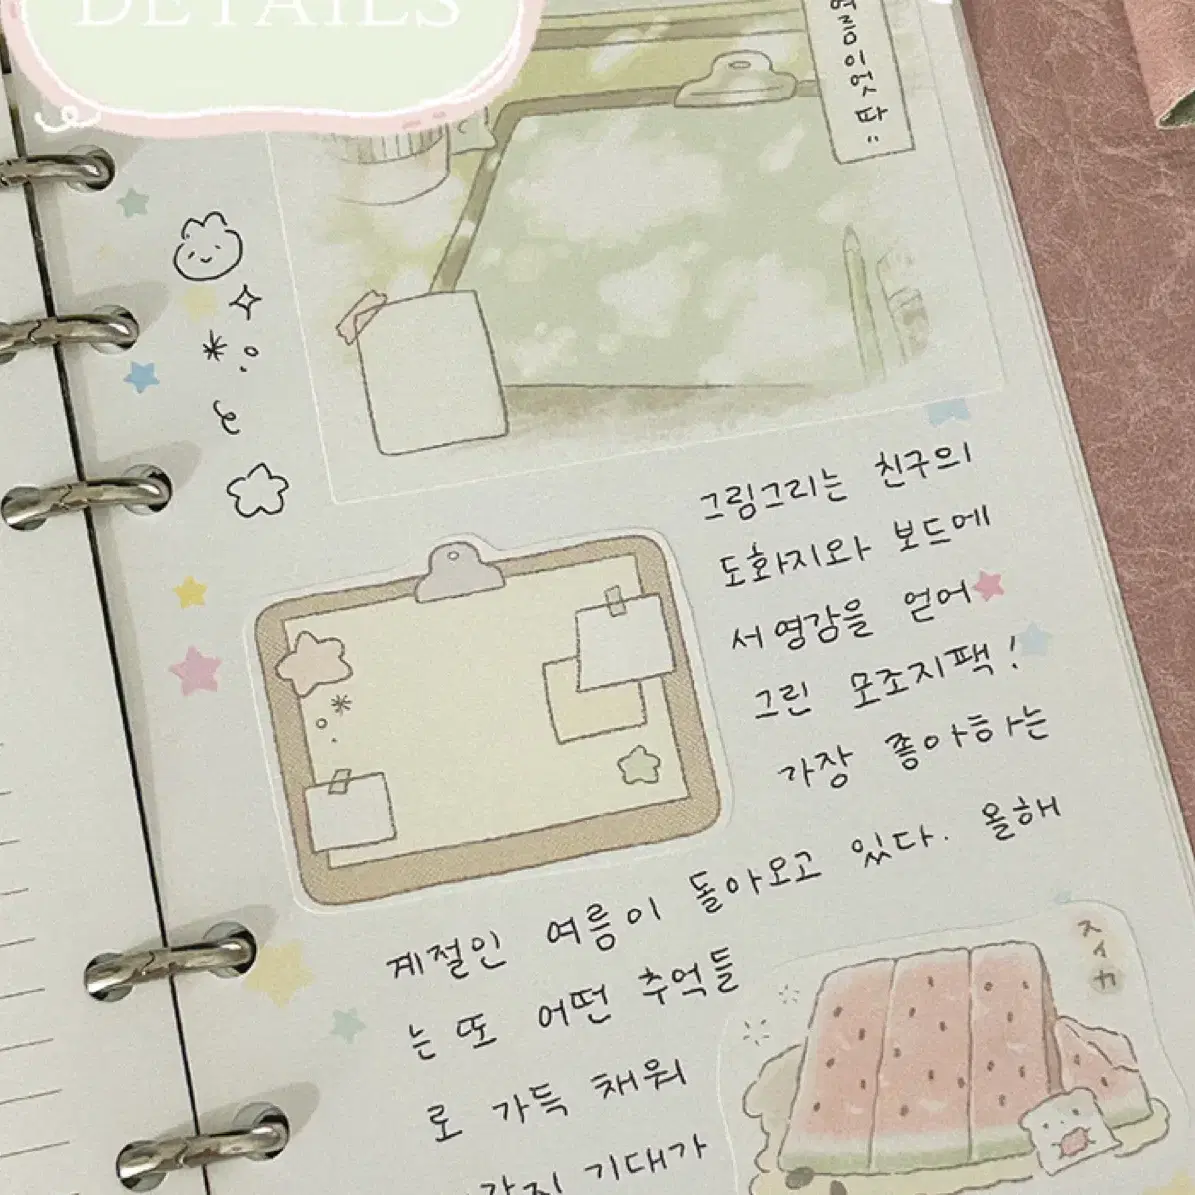 DETAILS
여름이엇따
그림그리는 친구의
도화지와 보드에
서 영감을 얻어
그린 모조지팩!
가장 좋아하는
계절인 여름이 돌아오고 있다. 올해
는 또 어떤 추억들
로 가득 채워
기대가
スイカ